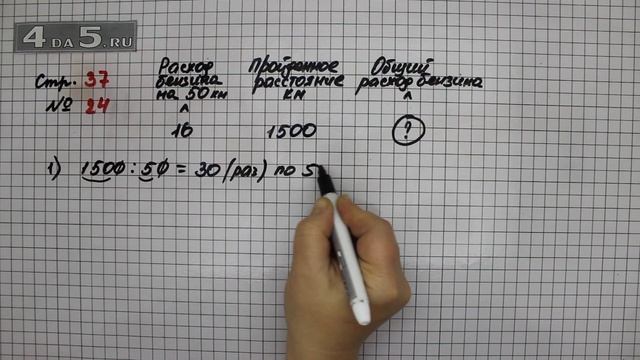 4 DA 5.RU
Стр. 37
№ 24
Расход бензина на 50 км
л
16
Пройденное расстояние
км
1500
Общий расход бензина
л
?
1) 1500 : 50 = 30 (раз) по 5